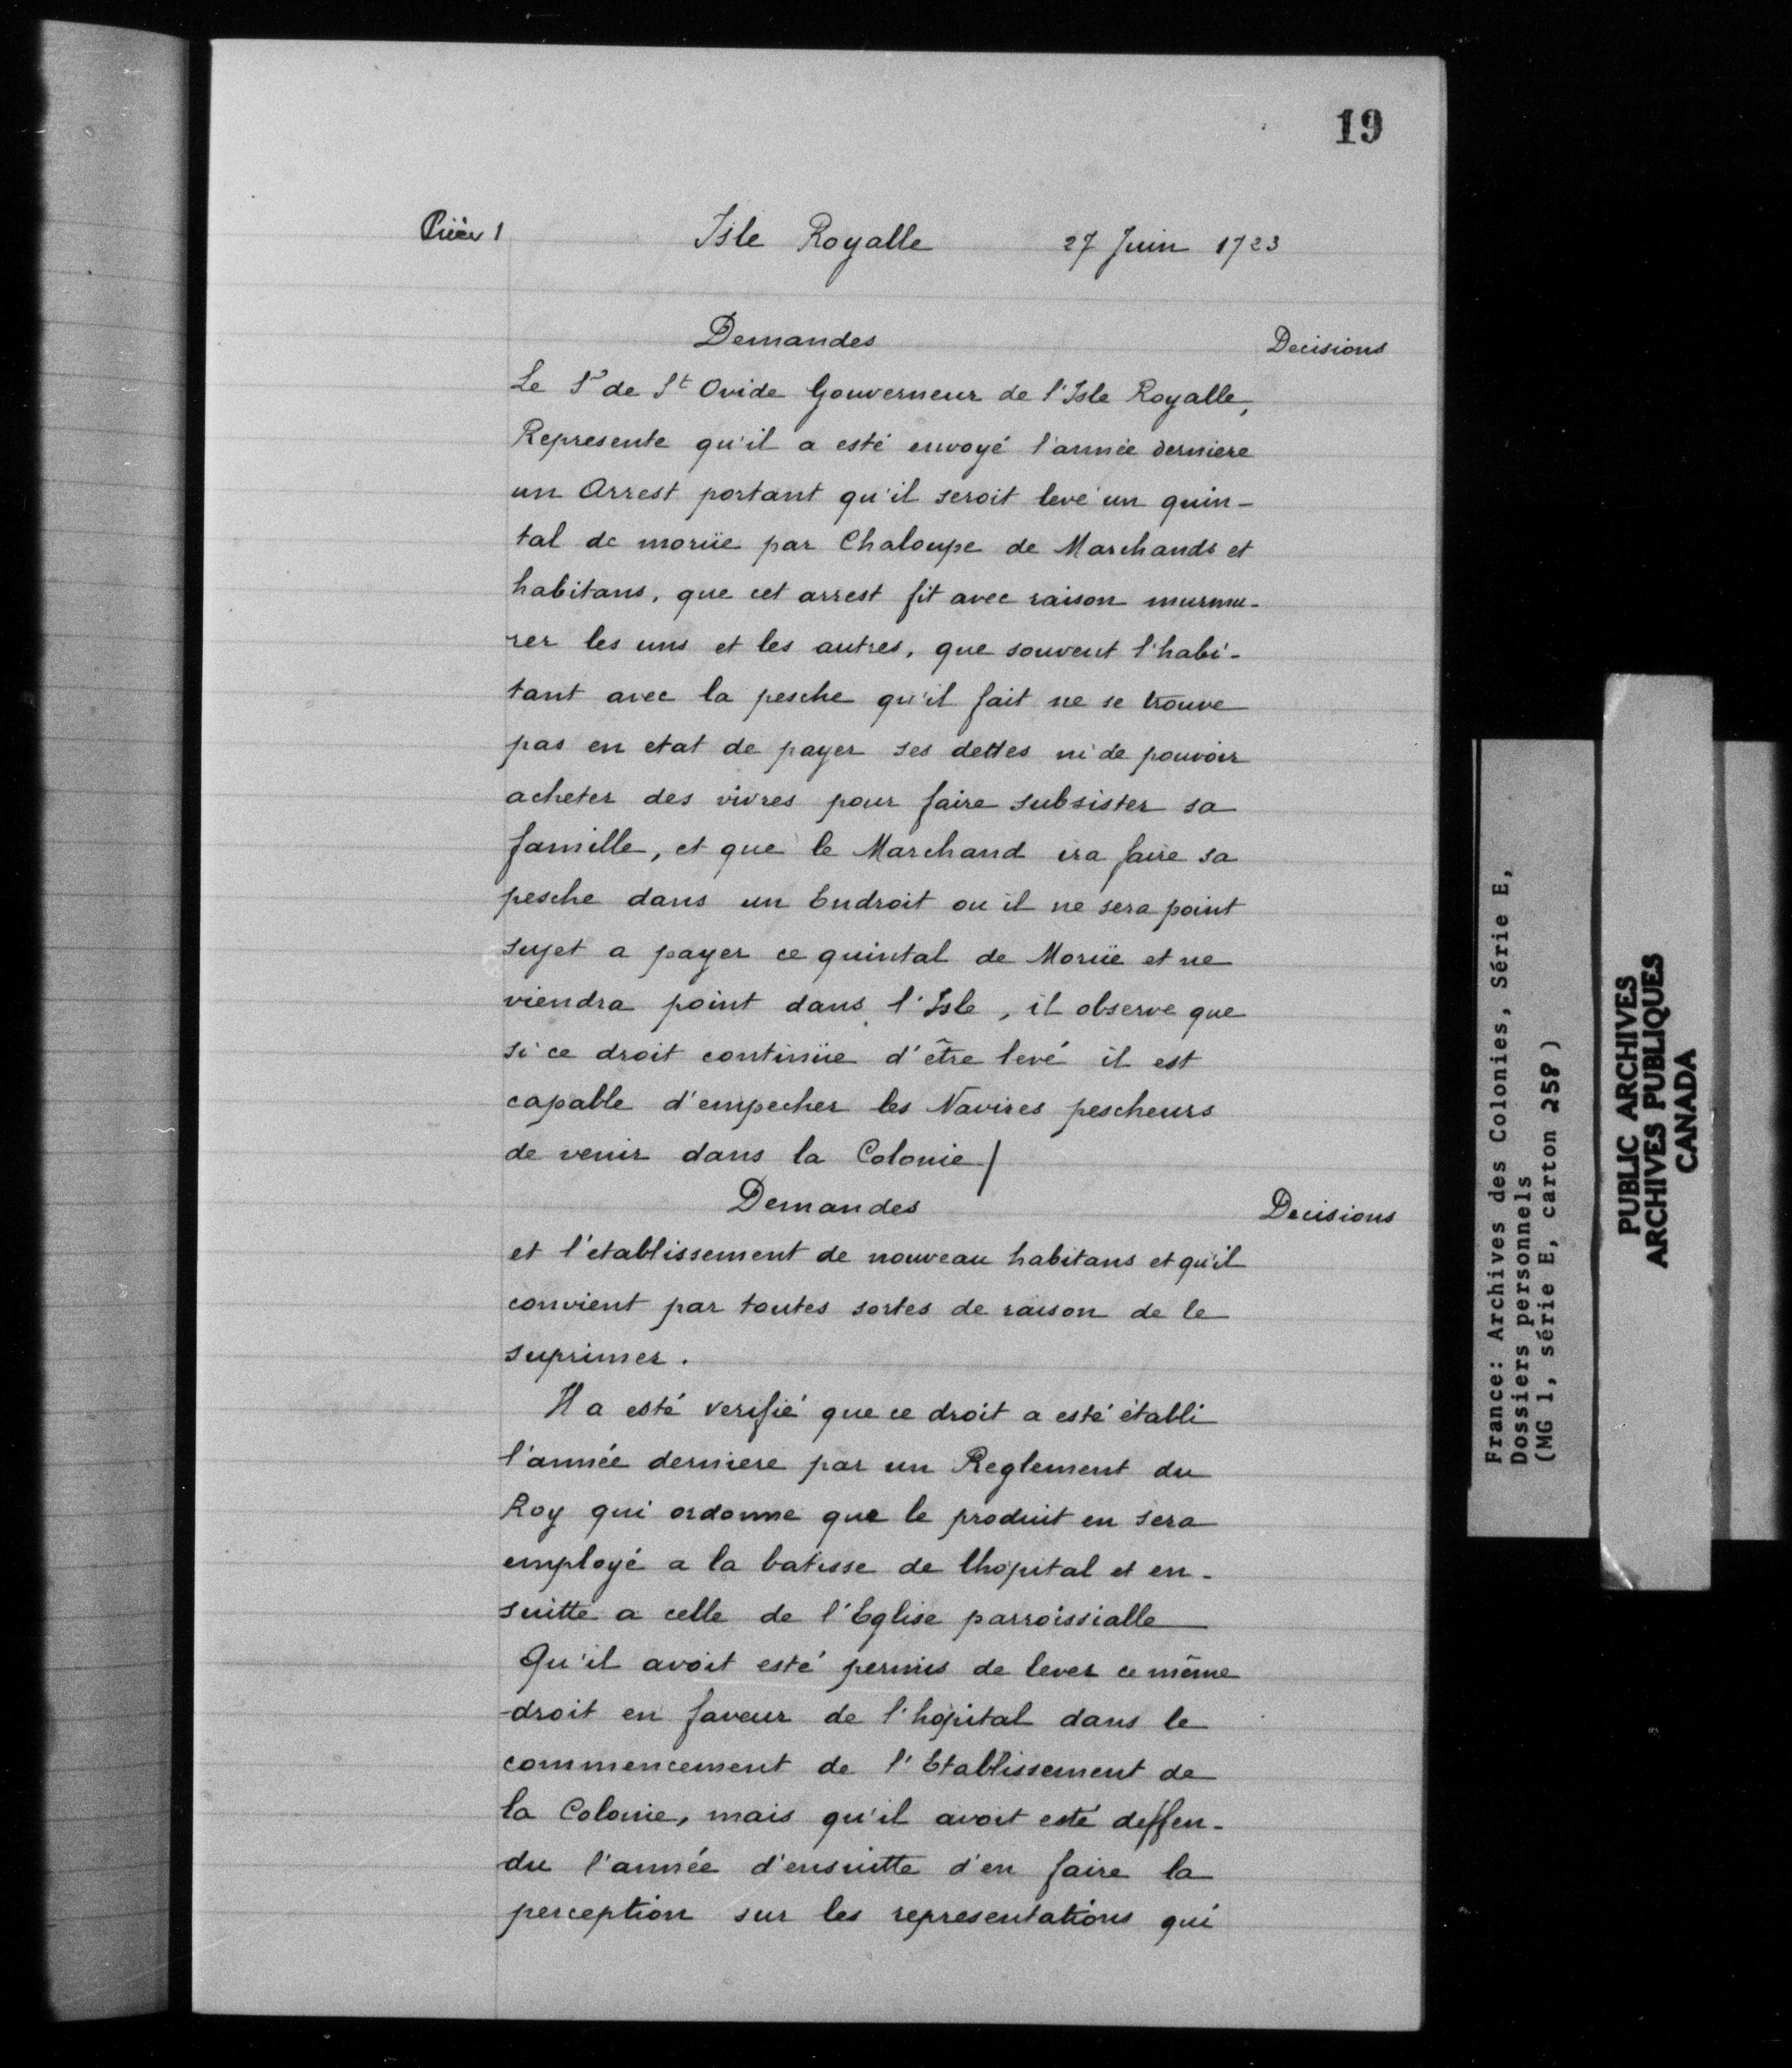 19
Pièce 1
Isle Royalle 27 Juin 1723
Demandes Decisions
Le Sr de St Ovide Gouverneur de l'Isle Royalle,
Represente qu'il a esté envoyé l'année derniere
un Arrest portant qu'il seroit levé un quin-
tal de moruë par Chaloupe de Marchands et
habitans, que cet arrest fit avec raison murmu-
rer les uns et les autres, que souvent l'habi-
tant avec la pesche qu'il fait ne se trouve
pas en etat de payer ses dettes ni de pouvoir
acheter des vivres pour faire subsister sa
famille, et que le Marchand ira faire sa
pesche dans un Endroit ou il ne sera point
sujet a payer ce quintal de Moruë et ne
viendra point dans l'Isle, il observe que
si ce droit continüe d'être levé il est
capable d'empecher les Navires pescheurs
de venir dans la Colonie /
Demandes Decisions
et l'etablissement de nouveau habitans et qu'il
convient par toutes sortes de raison de le
suprimer.
Il a esté verifié que ce droit a esté établi
l'année derniere par un Reglement du
Roy qui ordonne que le produit en sera
employé a la batisse de lhopital et en-
suitte a celle de l'Eglise parroissialle
Qu'il avoit esté permis de lever ce même
droit en faveur de l'hopital dans le
commencement de l'Etablissement de
la Colonie, mais qu'il avoit esté deffen-
du l'année d'ensuitte d'en faire la
perception sur les representations qui
France: Archives des Colonies, Série E,
Dossiers personnels
(MG 1, série E, carton 258)
PUBLIC ARCHIVES
ARCHIVES PUBLIQUES
CANADA